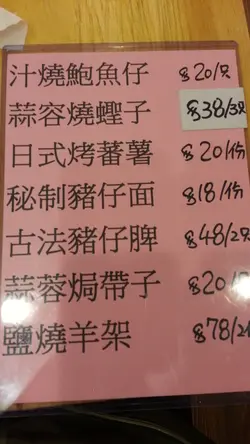 汁燒鮑魚仔 $20/只
蒜容燒蟶子 $38/3只
日式烤蕃薯 $20/份
秘制豬仔面 $18/份
古法豬仔脾 $48/2只
蒜蓉焗帶子 $20/
鹽燒羊架 $78/2